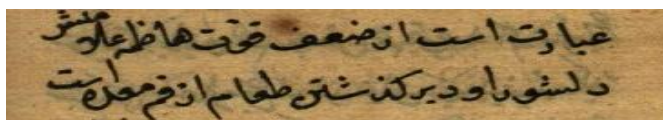 عبارت است از ضعف قوت هاضمه علامتش
دلشورا و دیر کذشتن طعام از فم معده است